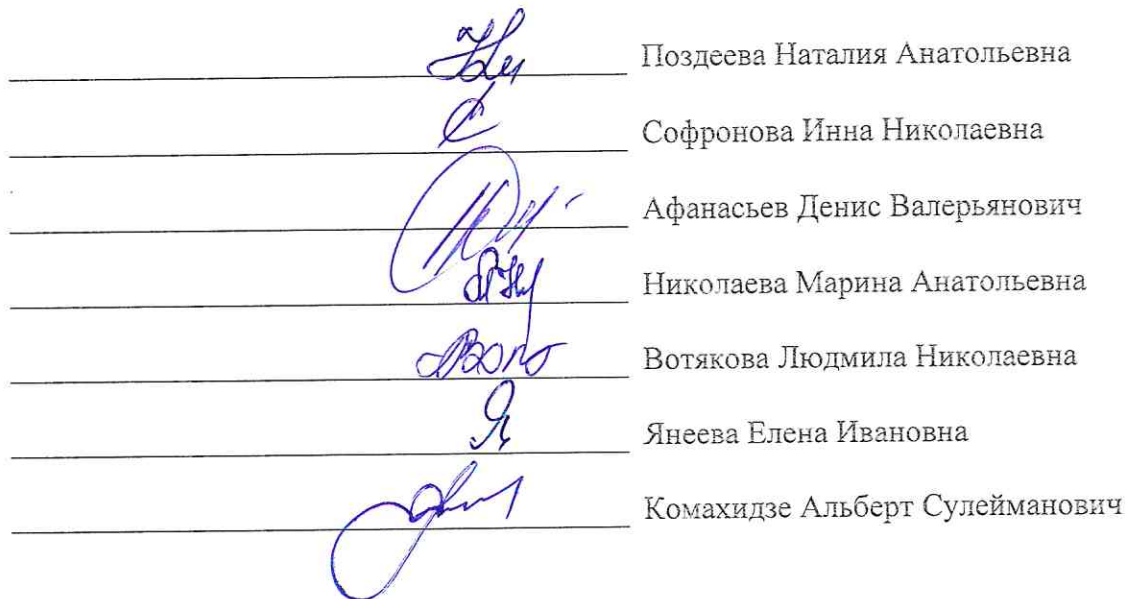 Поздеева Наталия Анатольевна
Софронова Инна Николаевна
Афанасьев Денис Валерьянович
Николаева Марина Анатольевна
Вотякова Людмила Николаевна
Янеева Елена Ивановна
Комахидзе Альберт Сулейманович